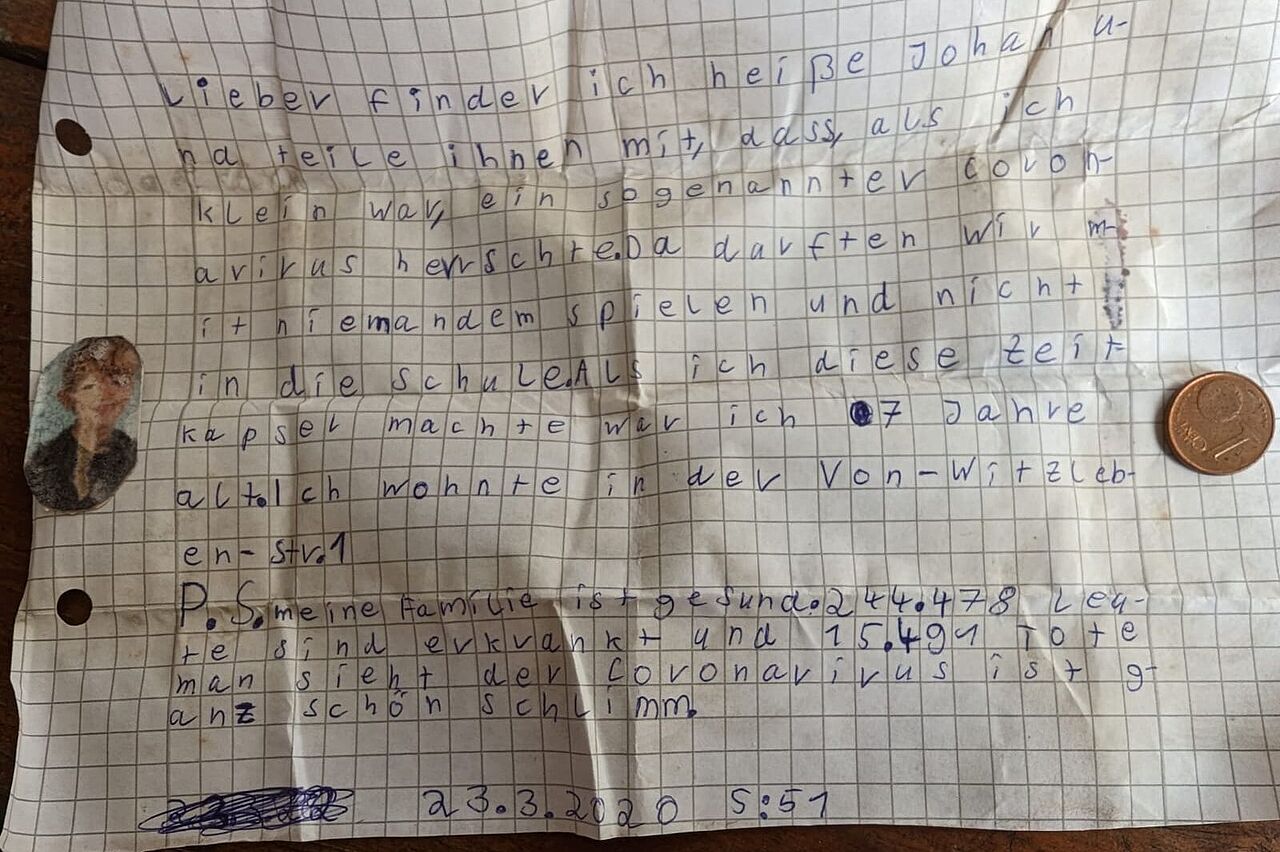 Lieber finder ich heiße Johan u-
nd teile ihnen mit, dass, als ich
klein war, ein sogenannter Coron-
avirus herrschte.Da darften wir m-
it niemandem spielen und nicht
in die schule.Als ich diese zeit-
kapsel machte war ich 7 Jahre
alt.Ich wohnte in der Von-Witzleb-
en-Str.1
P.S.meine Familie ist gesund.244.478 Leu-
te sind erkrankt und 15.491 Tote
man sieht der Coronavirus ist g-
anz schön schlimm.
23.3.2020 5:51
1 CENT